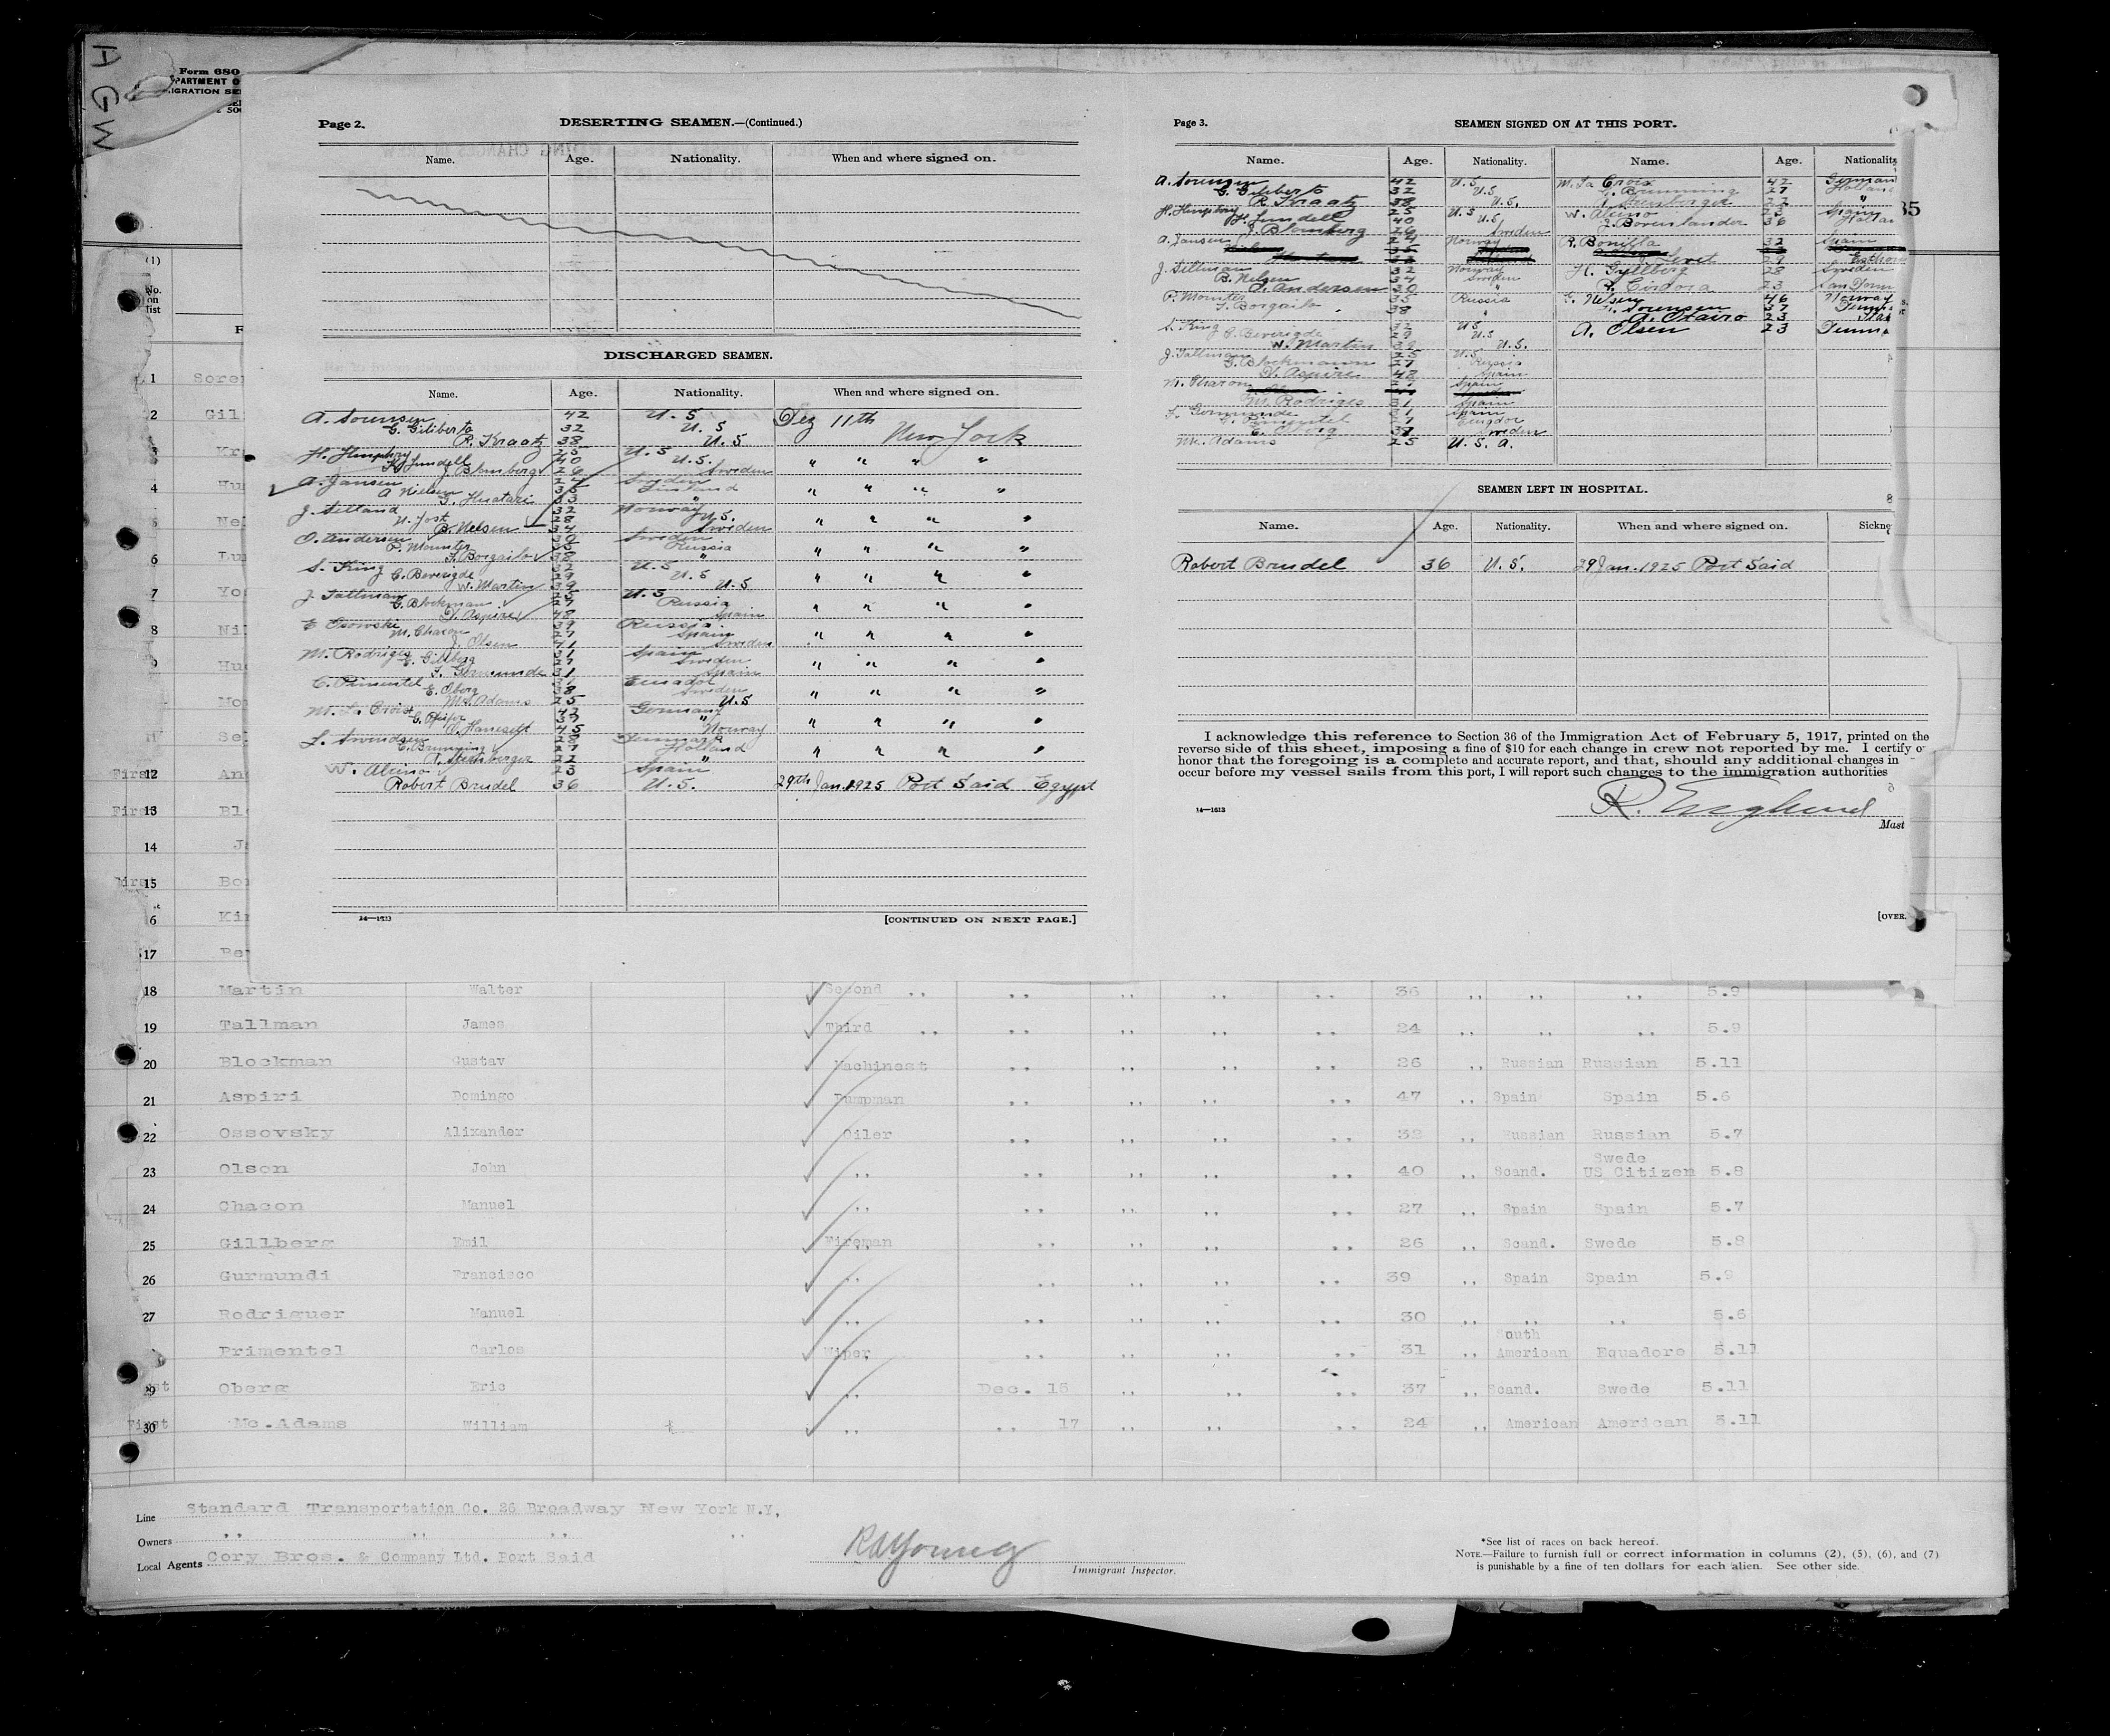 AGW
Form 680
Page 2.
DESERTING SEAMEN.—(Continued.)
Name. Age. Nationality. When and where signed on.
DISCHARGED SEAMEN.
Name. Age. Nationality. When and where signed on.
A. Sorensen 42 U.S. Dez 11th
G. Giliberto 32 U.S. New York
R. Kraatz 38 U.S.
H. Humphrey 25 U.S.
H. Lundell 40 U.S. " " " "
J. Blomberg 26 Sweden
A. Jansen 24 Sweden
A Nielsen 35 Finland " " " "
J. Huatari 33 "
J. Setland 32 Norway
U. Jost 28 U.S. " " " "
B. Nelsen 34 Sweden
O. Andersen 30 Sweden
P. Momster 35 Russia " " " "
J. Borgailo 38 "
S. King 32 U.S
C. Beverigde 29 U.S " " " "
W. Martin 39 U.S
J. Tallman 25 U.S
G. Blockman 27 Russia " " " "
D. Aspire 48 Spain
E Osowski 39 Russia
M. Chacon 27 Spain " " " "
J. Olsen 41 Sweden
M. Rodriges 31 Spain
E. Gillberg 27 Sweden " " " "
F. Gormunde 31 Spain
C. Pimentel 31 Ecuador
E. Oberg 38 Sweden " " " "
Mc. Adams 25 U.S
M. La Croix 42 Germany
C. Pfeifer 37 " " " " "
O. Haneselt 45 Norway
L. Swendsen 28 Denmark
C. Brunning 27 Holland " " " "
A. Steenberger 22 "
W. Alcino 23 Spain
Robert Brudel 36 U.S. 29th Jan. 1925 Port Said Egypt
14—1613
[CONTINUED ON NEXT PAGE.]
Page 3.
SEAMEN SIGNED ON AT THIS PORT.
Name. Age. Nationality. Name. Age. Nationalit
A. Sorensen 42 U.S. M. La Croix 42 German
G. Giliberto 32 U.S. C. Brunning 27 Hollan
R Kraatz 38 U.S. A. Steenberger 22 "
H. Humphrey 25 U.S W. Alcino 23 Spain
H. Lundell 40 U.S. J. Bovenlander 36 Hollan
J. Blomberg 26 Sweden
A. Jansen 24 Norway R. Bonilla 32 Spain
Levet 29 Esthon
J. Setlman 32 Norway H. Gyllberg 28 Sweden
B. Nelsen 34 Sweden
O. Andersen 30 " R. Cordora 23 San Dom
P. Momster 35 Russia E. Nelsen 46 Norway
J. Borgailo 38 " H. Sorensen 37
A. Otairo 23
S. King 32 U.S A. Olsen 23 Denma
C. Beverigde 29 U.S
W. Martin 39 U.S.
J. Tallman 25 U.S.
G. Blockmann 27 Russia
D. Aspire 48 Spain
M. Charon 27 Spain
M. Rodriges 31 Spain
F. Gormunde 31 Spain
C. Pimentel 31 Ecugdor
E. Oberg 38 Sweden
Mc. Adams 25 U.S.A.
SEAMEN LEFT IN HOSPITAL.
Name. Age. Nationality. When and where signed on. Sickne
Robert Brudel 36 U.S. 29 Jan. 1925 Port Said
I acknowledge this reference to Section 36 of the Immigration Act of February 5, 1917, printed on the
reverse side of this sheet, imposing a fine of $10 for each change in crew not reported by me. I certify o
honor that the foregoing is a complete and accurate report, and that, should any additional changes in
occur before my vessel sails from this port, I will report such changes to the immigration authorities
R. Englund
Mast
14—1613
[OVER.
35
(1)
No.
on
list
1 Soren
2 Gil
3 Kr
4 Hu
5 Ne
6 Lu
7 Yo
8 Nil
9 Hu
Ho
Se
First 12 An
First 13 Bl
14 J
First 15 Bo
6 Kin
17 Be
18 Martin Walter Second ,, ,, ,, ,, ,, 36 ,, ,, ,, 5.9
19 Tallman James Third ,, ,, ,, ,, ,, 24 ,, ,, ,, 5.9
20 Blockman Gustav Machinest ,, ,, ,, ,, 26 ,, Russian Russian 5.11
21 Aspiri Domingo Pumpman ,, ,, ,, ,, 47 ,, Spain Spain 5.6
22 Ossovsky Alixander Oiler ,, ,, ,, ,, 32 ,, Russian Russian 5.7
23 Olson John ,, ,, ,, ,, ,, 40 ,, Scand. Swede US Citizen 5.8
24 Chacon Manuel ,, ,, ,, ,, ,, 27 ,, Spain Spain 5.7
25 Gillberg Emil Fireman ,, ,, ,, ,, 26 ,, Scand. Swede 5.8
26 Gurmundi Francisco ,, ,, ,, ,, ,, 39 ,, Spain Spain 5.9
27 Rodriguer Manuel ,, ,, ,, ,, ,, 30 ,, ,, ,, 5.6
Primentel Carlos Wiper ,, ,, ,, ,, 31 ,, South American Equadore 5.11
29 Oberg Eric ,, Dec. 15 ,, ,, ,, 37 ,, Scand. Swede 5.11
First 30 Mc.Adams William ,, ,, 17 ,, ,, ,, 24 ,, American American 5.11
Line Standard Transportation Co. 26 Broadway New York N.Y,
Owners ,, ,, ,, ,,
Local Agents Cory Bros. & Company Ltd. Port Said
RA Young
Immigrant Inspector.
*See list of races on back hereof.
NOTE.—Failure to furnish full or correct information in columns (2), (5), (6), and (7)
is punishable by a fine of ten dollars for each alien. See other side.